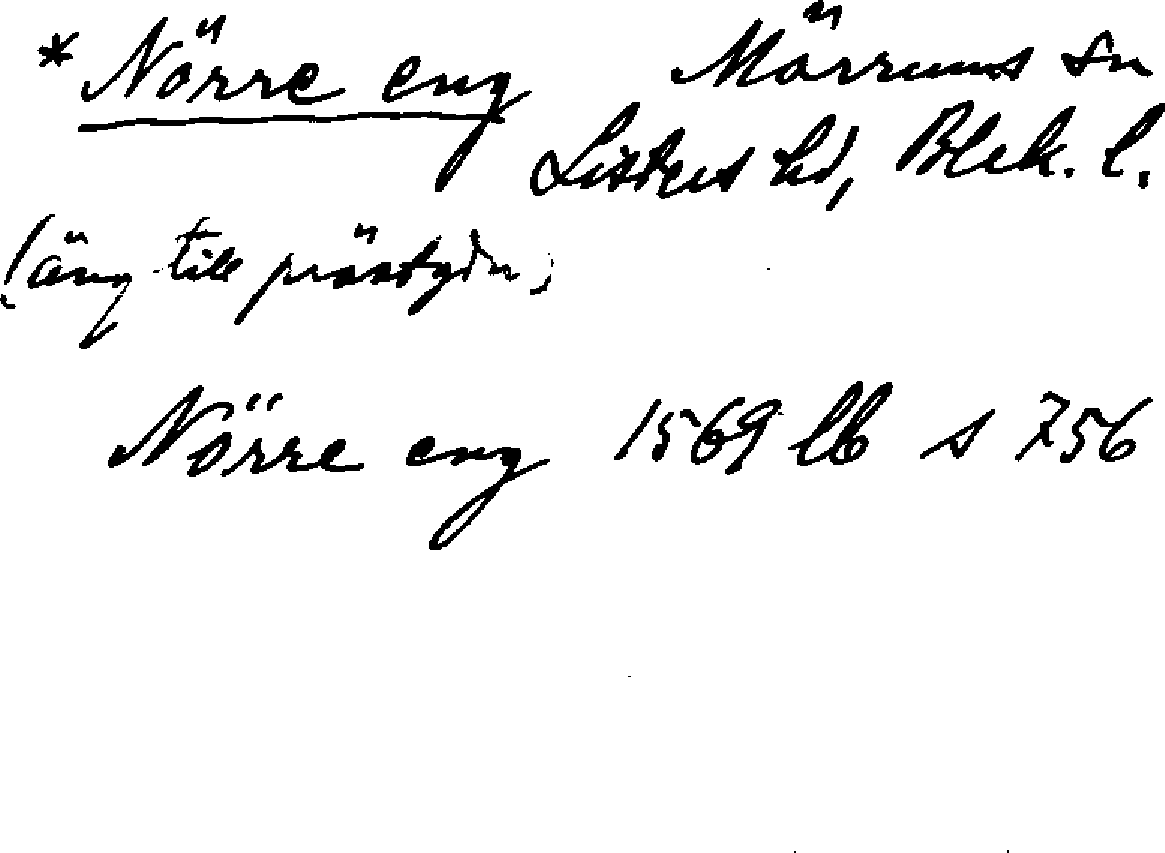 * Nörre eng Mörrums sn
Listers hd, Blek. l.
(äng till prästgdn)
Nörre eng 1569 lb s 756